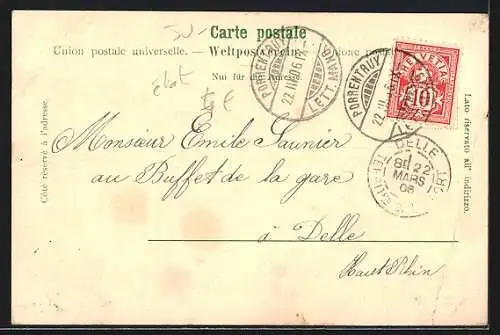 Carte postale
Union postale universelle. – Weltpostverein. – Unione postale
Nur für die Adresse.
Côté réservé à l'adresse.
Lato riservato all' indirizzo.
PORRENTRUY
22.III.06
LETT. MAND.
PORRENTRUY
22.III.06
HELVETIA
10
DELLE
8E 22
MARS
06
Monsieur Emile Saunier
au Buffet de la gare
à Delle
Haut Rhin